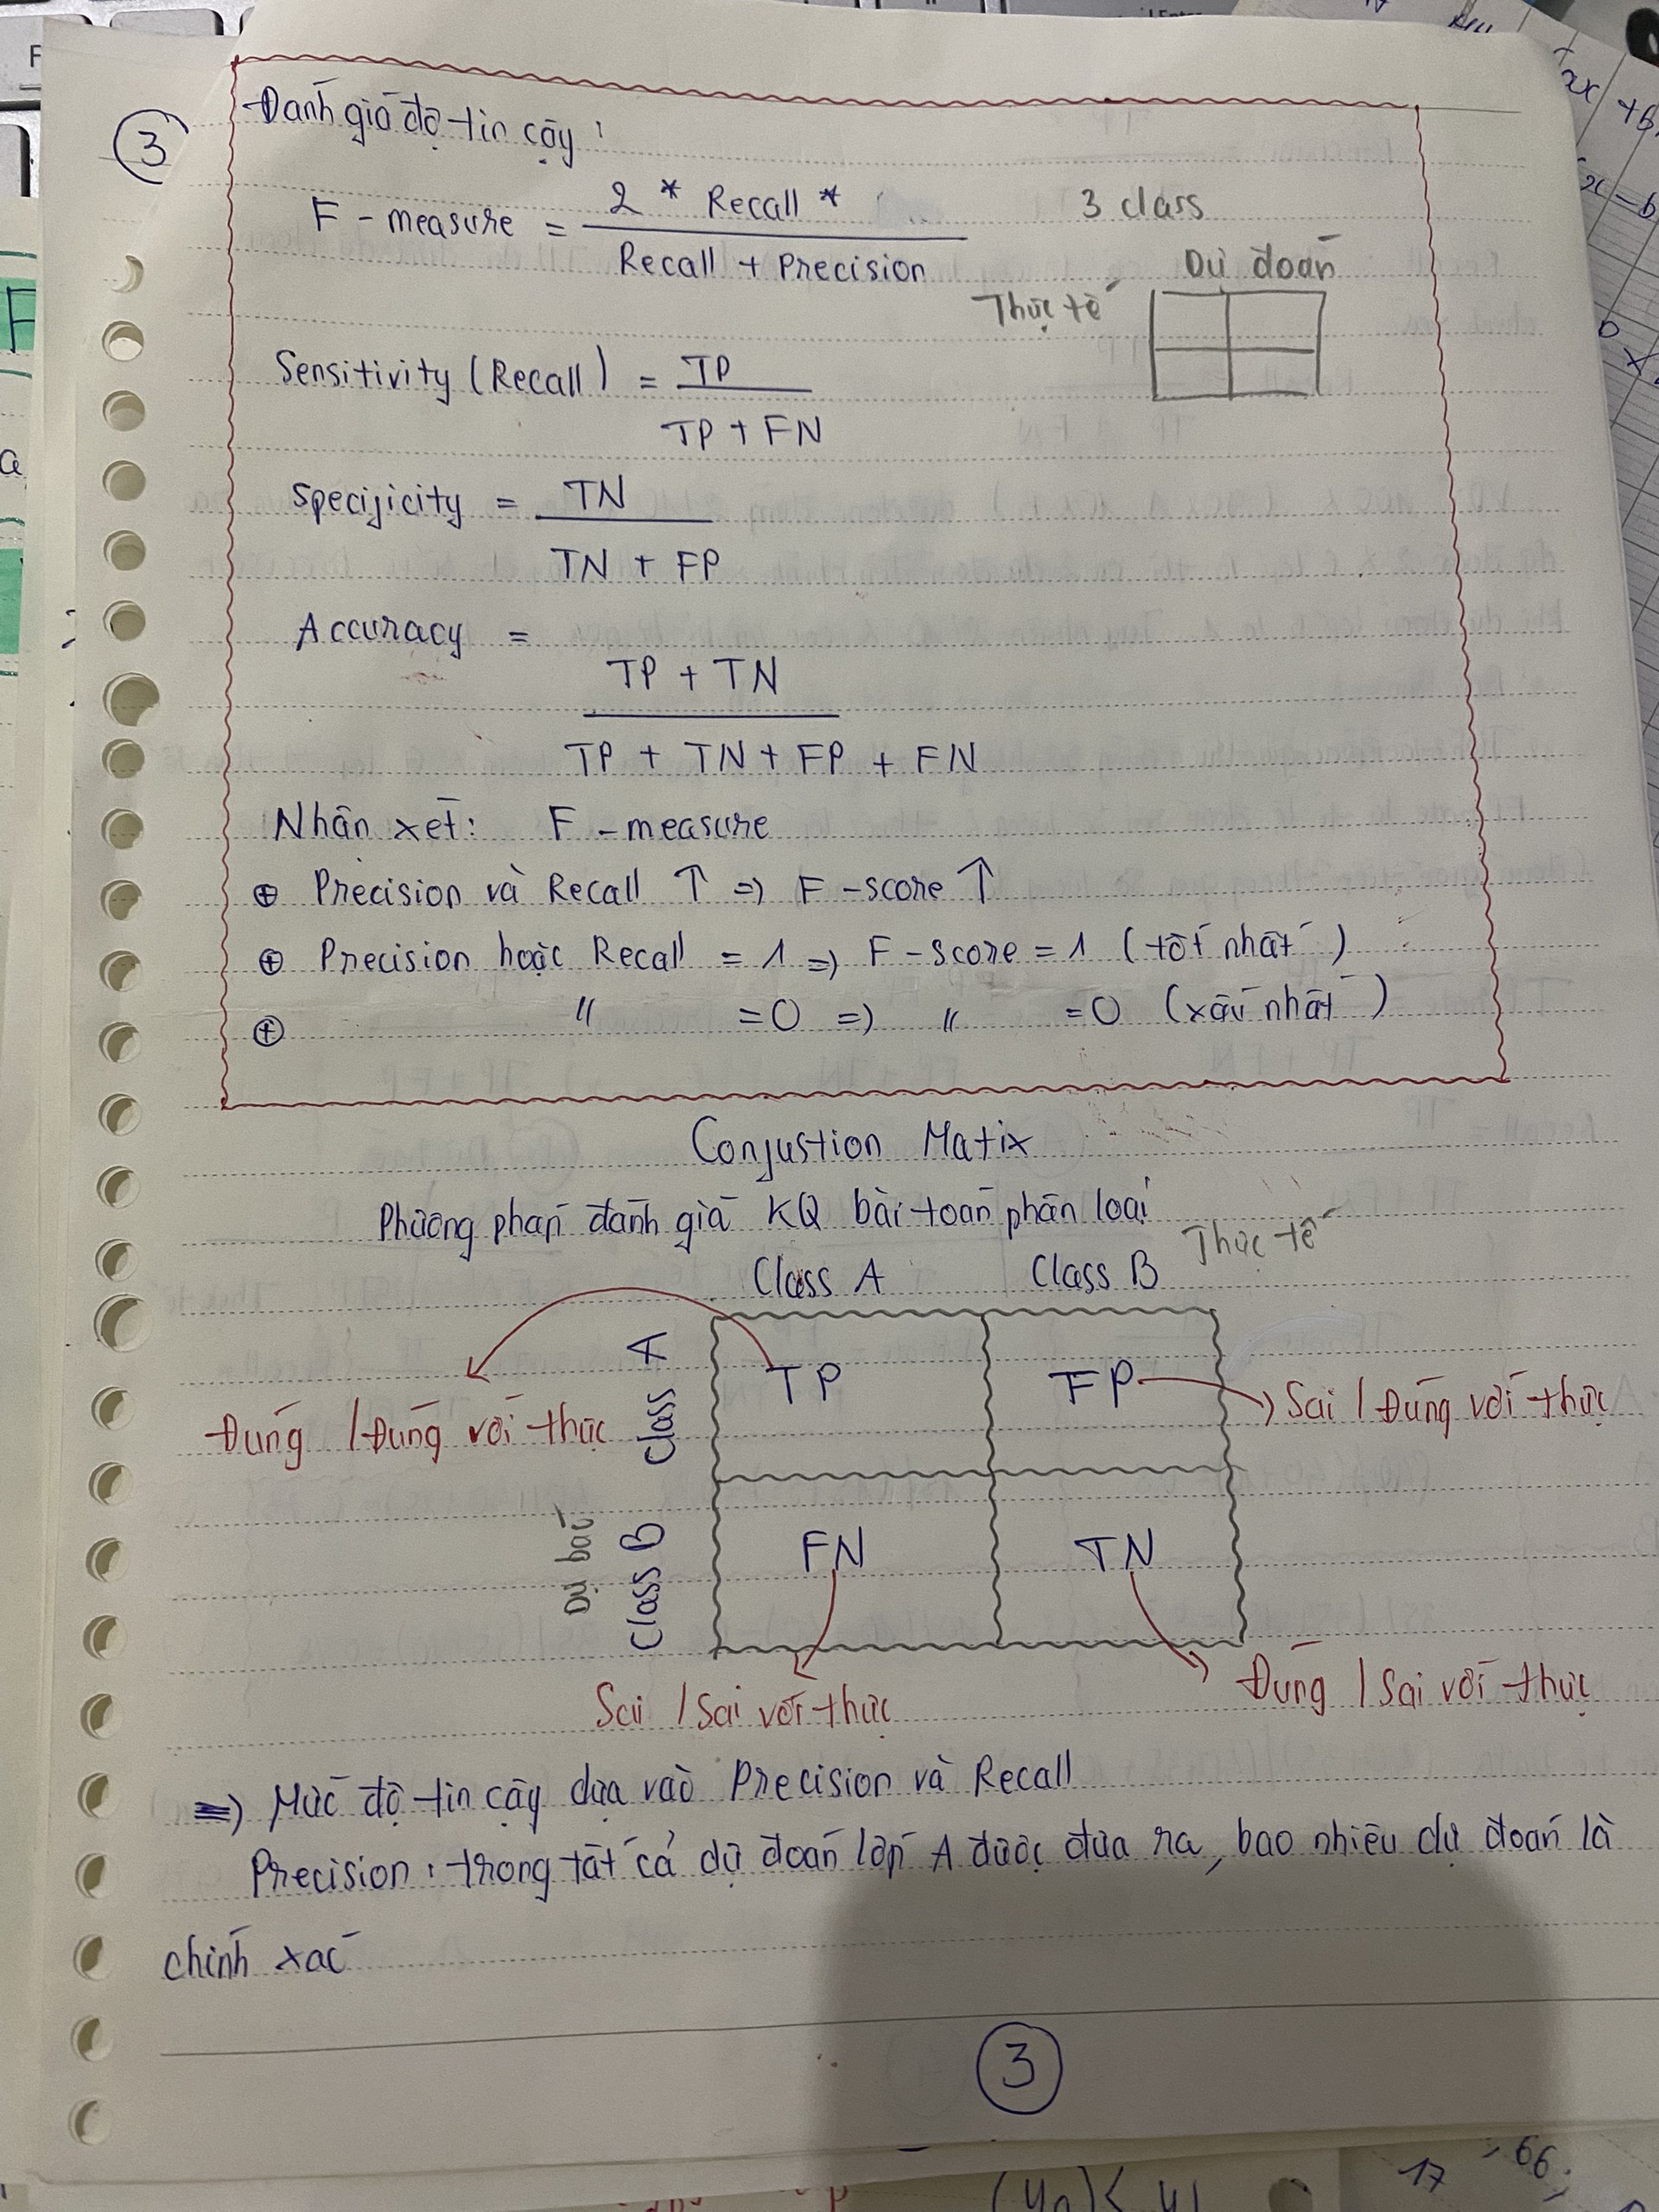 3
Đánh giá độ tin cậy:
F - measure = 2 * Recall *
Recall + Precision
3 class
Dự đoán
Thực tế
Sensitivity (Recall) = TP
TP + FN
Specificity = TN
TN + FP
Accuracy =
TP + TN
TP + TN + FP + FN
Nhận xét: F - measure
⊕ Precision và Recall ↑ => F - score ↑
⊕ Precision hoặc Recall = 1 => F - score = 1 (tốt nhất)
⊕ " = 0 => " = 0 (xấu nhất)
Confustion Matix
Phương pháp đánh giá KQ bài toán phân loại
Thực tế
Class A Class B
Class A
TP FP
Đúng / Đúng với thực
Sai / Đúng với thực
Dự báo
Class B
FN TN
Sai / Sai với thực
Đúng / Sai với thực
=> Mức độ tin cậy dựa vào Precision và Recall
Precision: trong tất cả dự đoán lớp A được đưa ra, bao nhiêu dự đoán là
chính xác
3
17
66